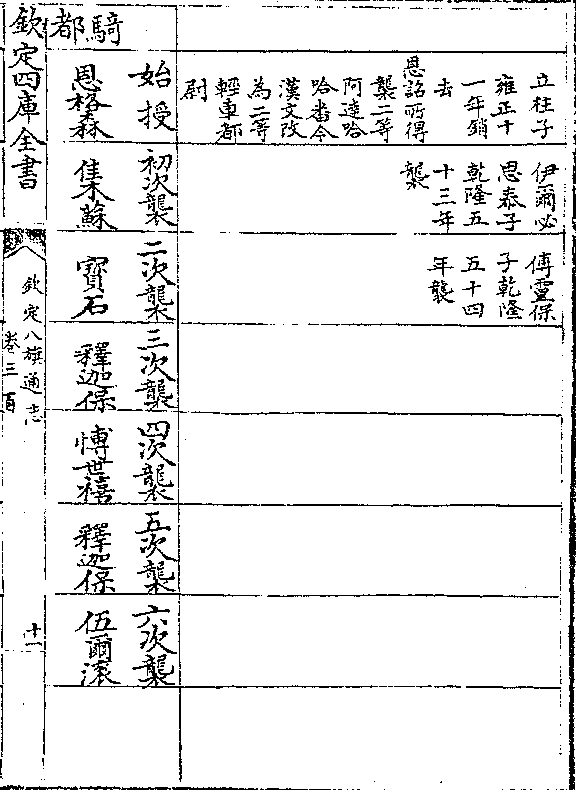 立柱子
雍正十
一年銷
去
恩詔所得
襲二等
阿達哈
哈番今
漢文改
為二等
輕車都
尉
伊爾必
思泰子
乾隆五
十三年
襲
傅靈保
子乾隆
五十四
年襲
騎都
始授
恩格森
初次襲
集蘇
二次襲
寳石
三次襲
釋迦保
四次襲
博世禧
五次襲
釋迦保
六次襲
伍爾滚
欽定四庫全書
欽定八旗通志
卷三百
十一